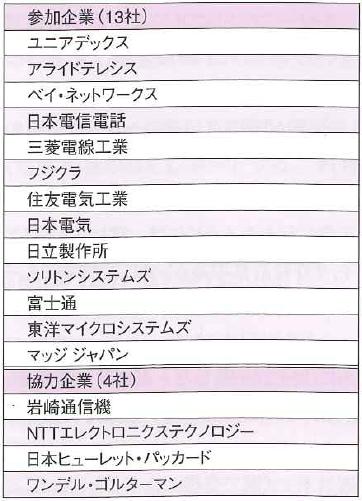 参加企業（13社）
ユニアデックス
アライドテレシス
ベイ・ネットワークス
日本電信電話
三菱電線工業
フジクラ
住友電気工業
日本電気
日立製作所
ソリトンシステムズ
富士通
東洋マイクロシステムズ
マッジ ジャパン
協力企業（4社）
岩崎通信機
NTTエレクトロニクステクノロジー
日本ヒューレット・パッカード
ワンデル・ゴルターマン